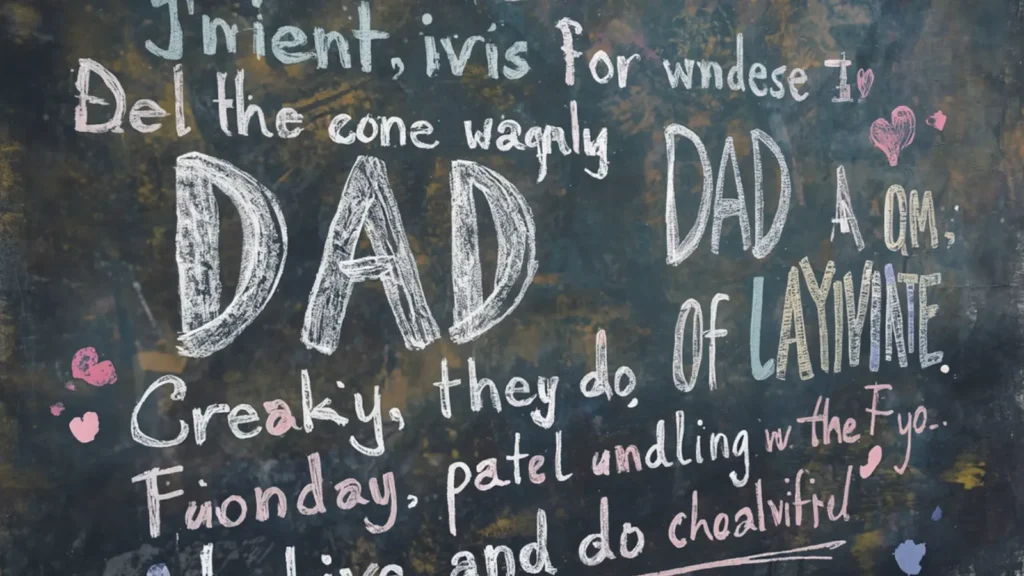 J'mient, ivis for wndese I
Del the cone wagnly
DAD DAD A QM,
OF LAYIVIATE.
Creaky, they do
Fuonday, patel undling w. the Fyo..
and do choalvifid